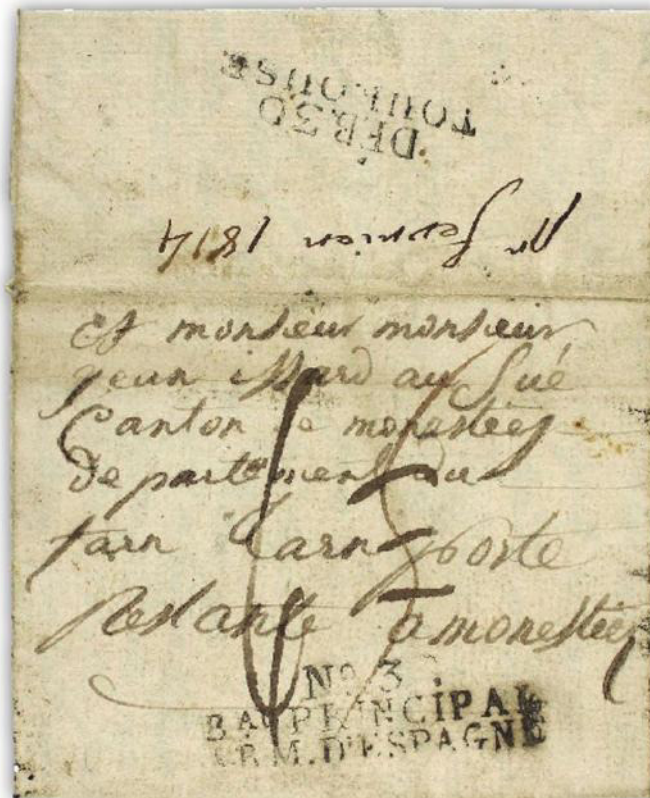 DEB.30
TOULOUSE
fevrier 1814
A monsieur monsieur
jean au
Canton de monesties
departement du
tarn tarn poste
restante a monesties
No 3
Bau PRINCIPAL
ARM. D'ESPAGNE